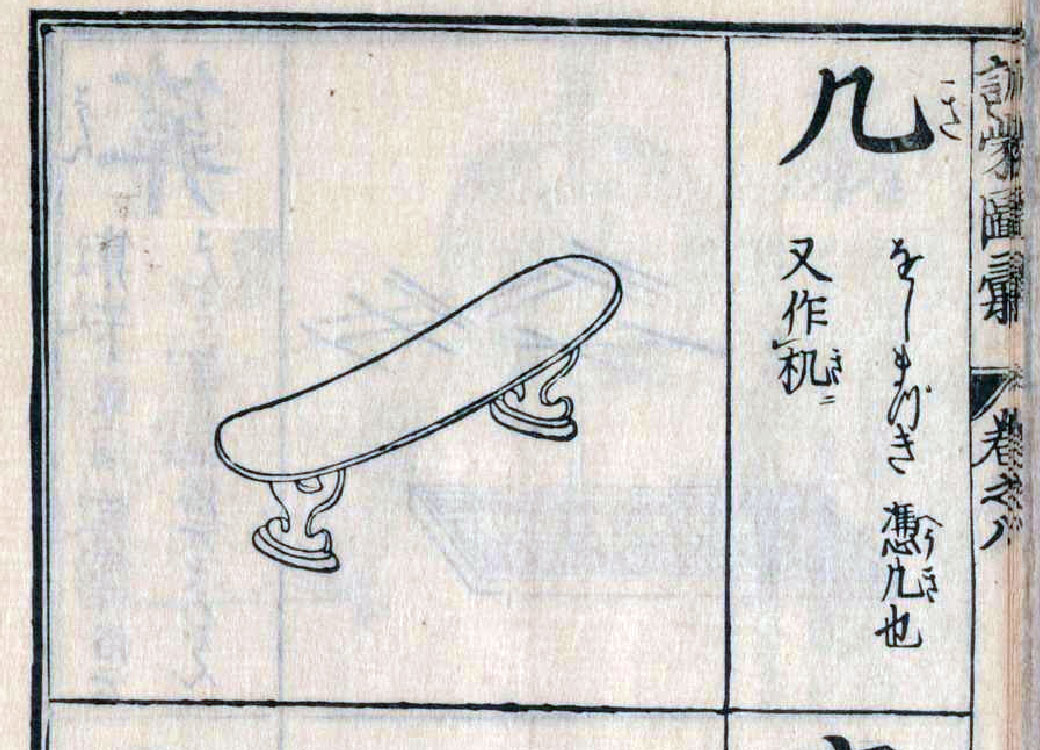 訓蒙圖彙 巻之八
几
き
をしまづき 憑几也
又作机